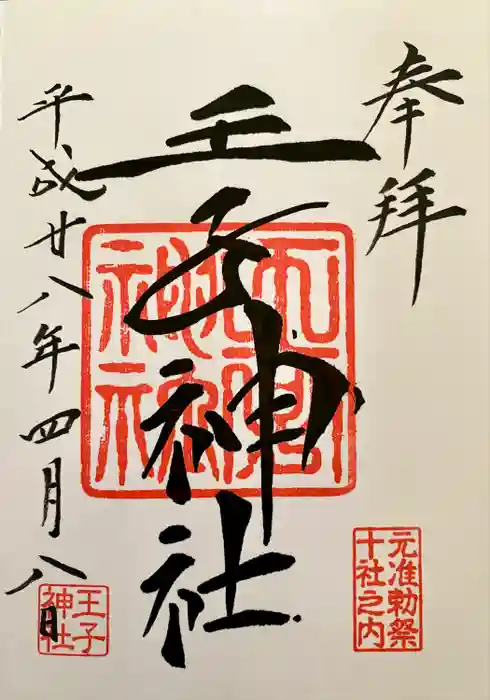 奉拝
王子神社
平成廿八年四月八日
元准勅祭
十社之内
王子
神社